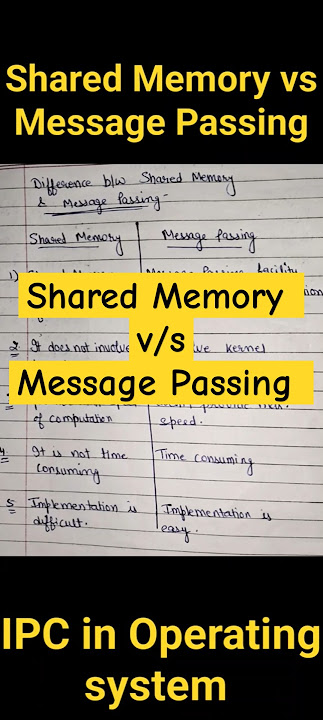 Shared Memory vs
Message Passing
Difference b/w Shared Memory
& Message Passing-
Shared Memory
Message Passing
1)
Message Passing facility
Shared Memory
v/s
Message Passing
2. It does not involve
kernel
of computation
speed.
4. It is not time
consuming
Time consuming
5. Implementation is
difficult.
Implementation is
easy.
IPC in Operating
system